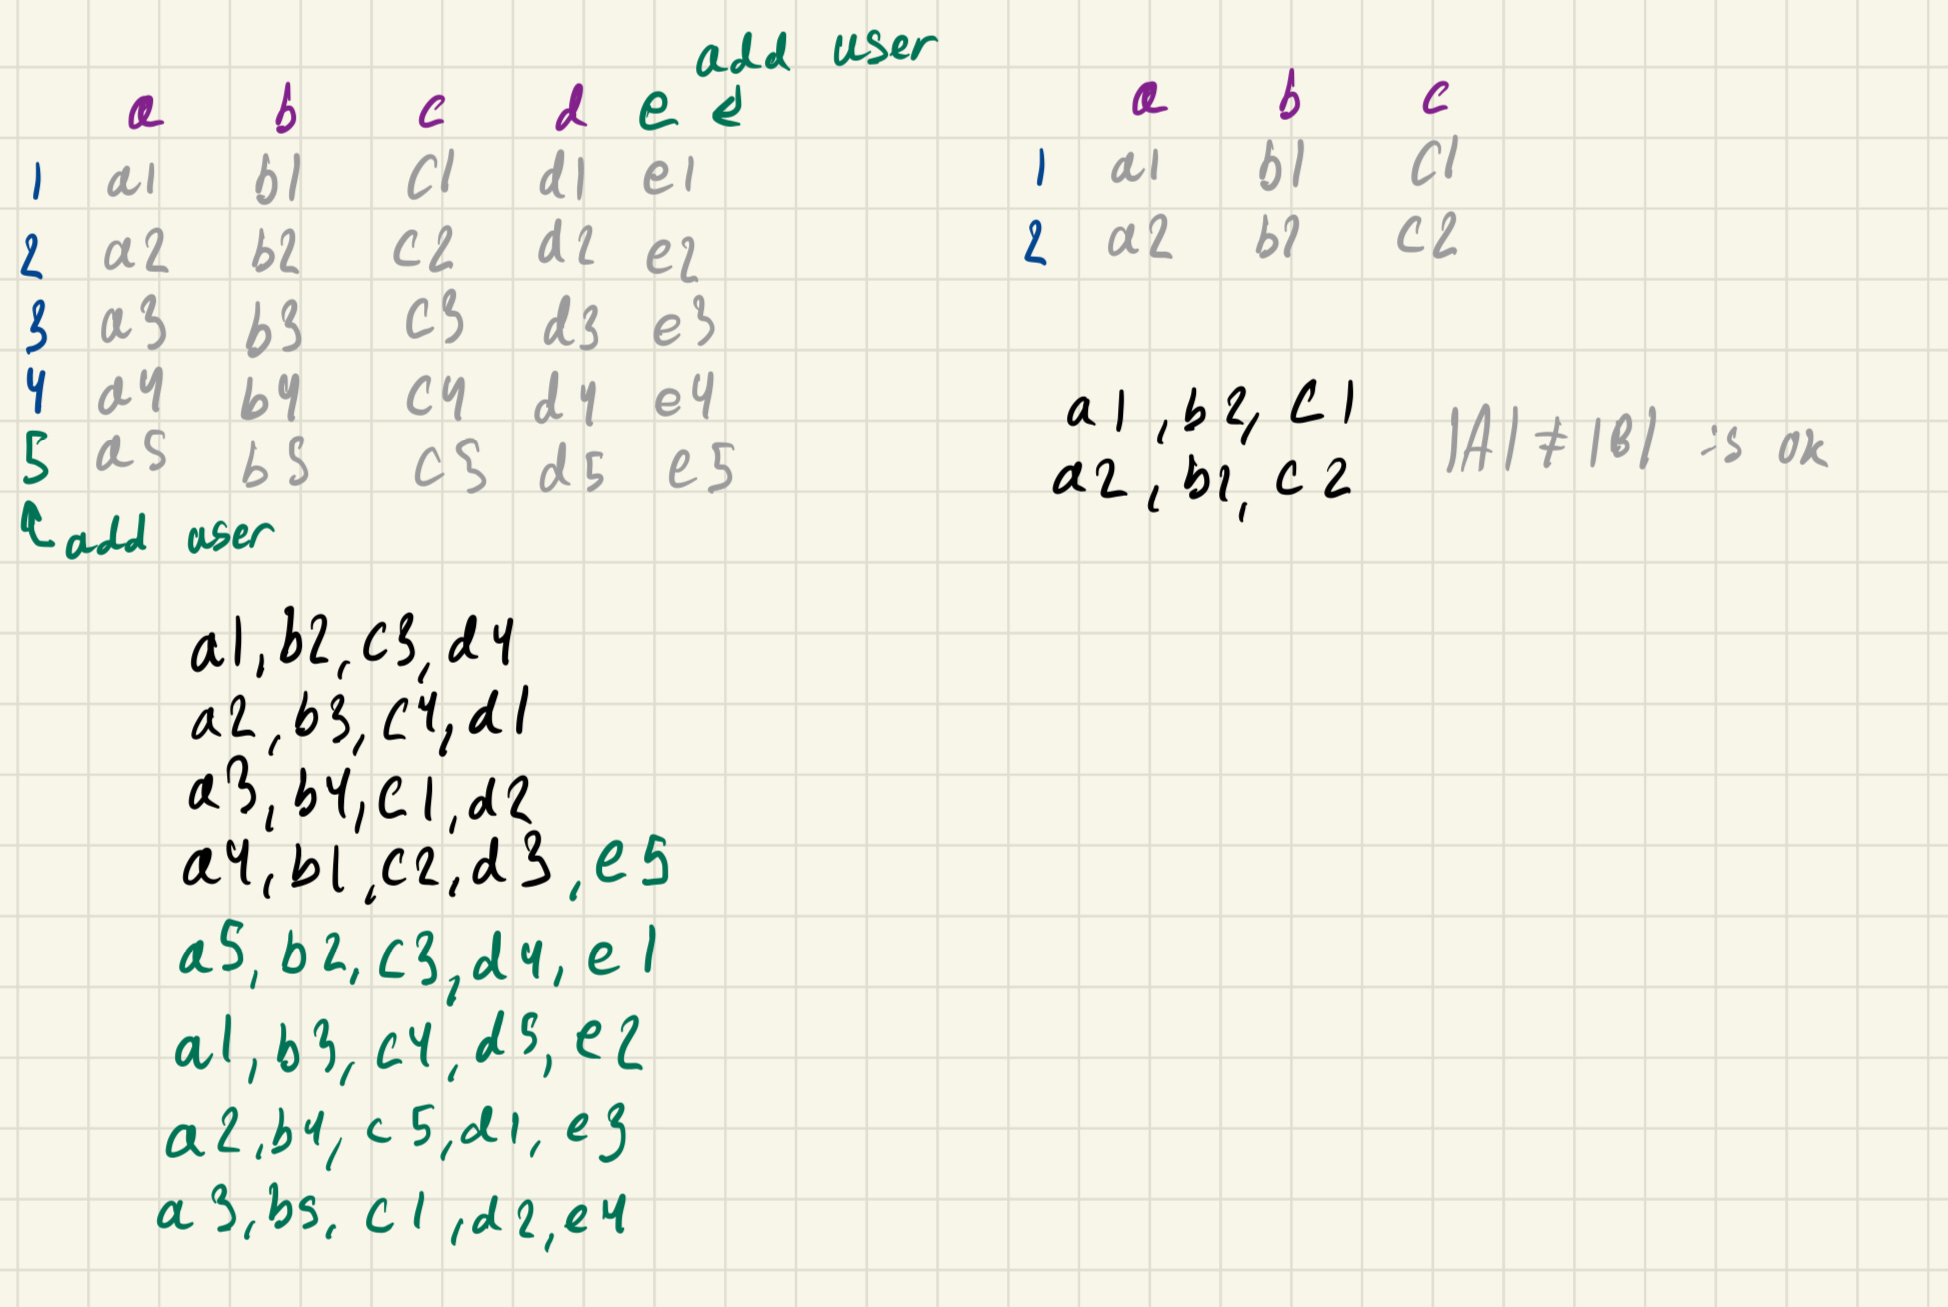 add user
a b c d e
1 a1 b1 c1 d1 e1
2 a2 b2 c2 d2 e2
3 a3 b3 c3 d3 e3
4 a4 b4 c4 d4 e4
5 a5 b5 c5 d5 e5
add user
a1, b2, c3, d4
a2, b3, c4, d1
a3, b4, c1, d2
a4, b1, c2, d3, e5
a5, b2, c3, d4, e1
a1, b3, c4, d5, e2
a2, b4, c5, d1, e3
a3, b5, c1, d2, e4
a b c
1 a1 b1 c1
2 a2 b2 c2
a1, b2, c1
a2, b1, c2
|A| ≠ |B| is ok